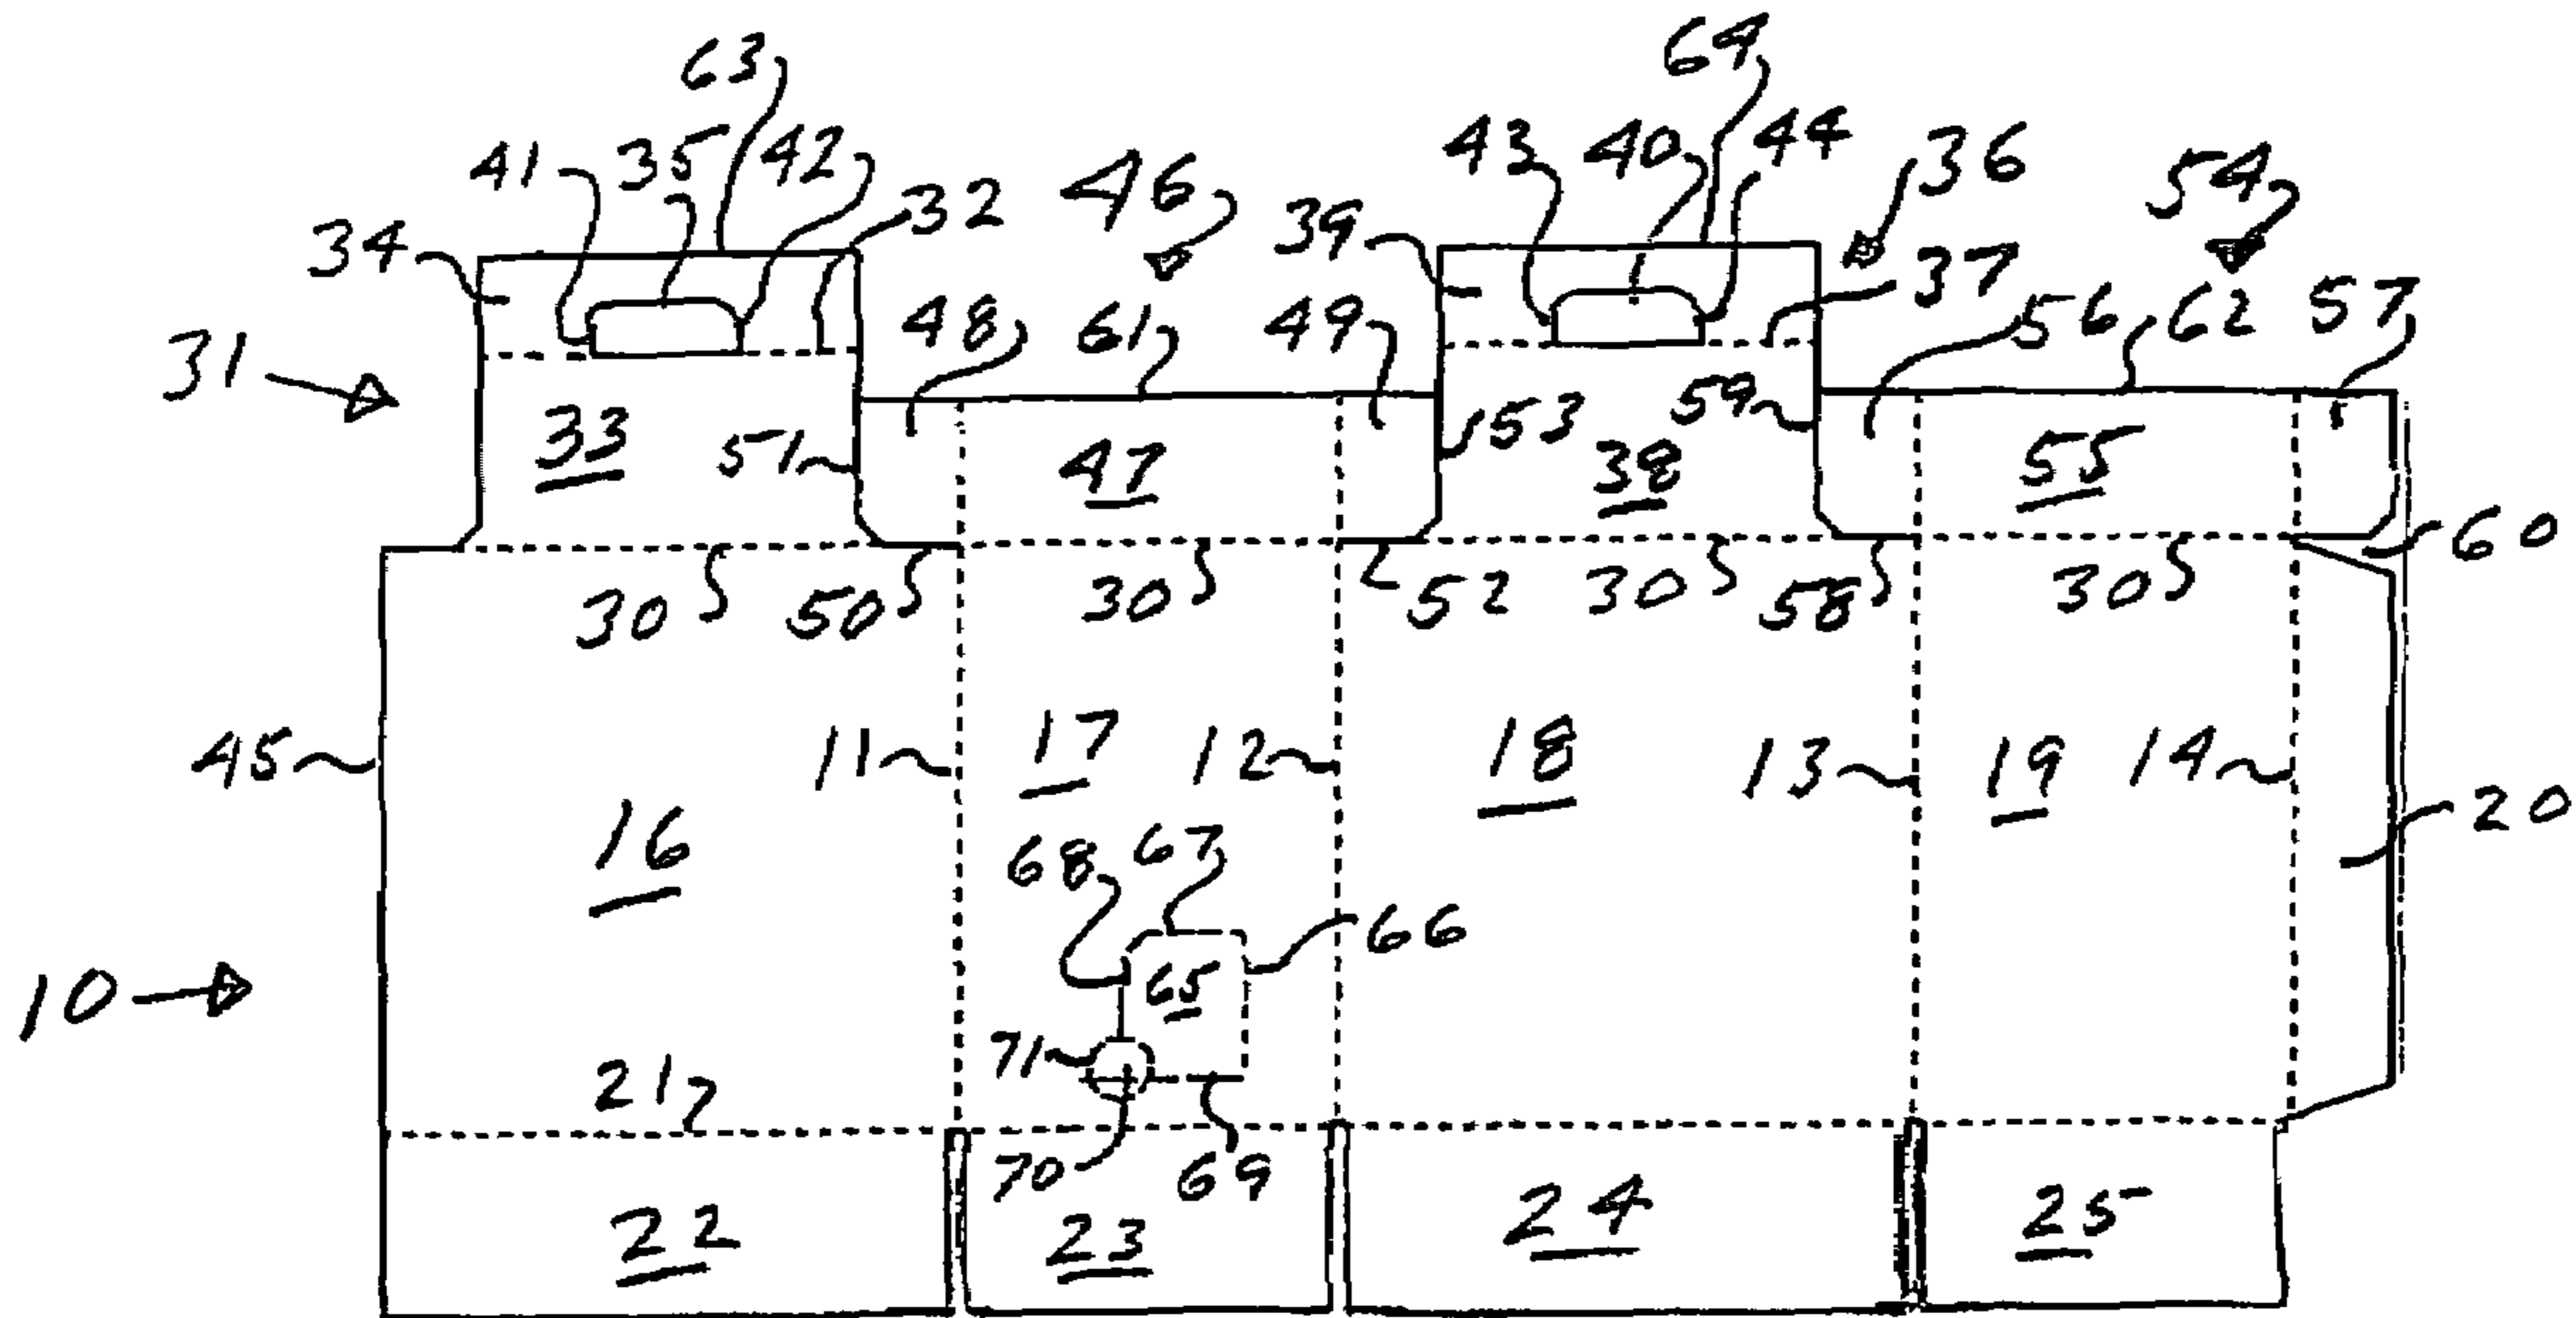 63 64
41 35 42 32 46 43 40 44 36 54
34 39 37
31 48 61 49 56 62 57
33 51 47 53 59 38 55
60
30 50 30 52 30 58 30
45 11 17 12 18 13 19 14
16 20
68 67 66
65
10 71
21
70 69
22 23 24 25